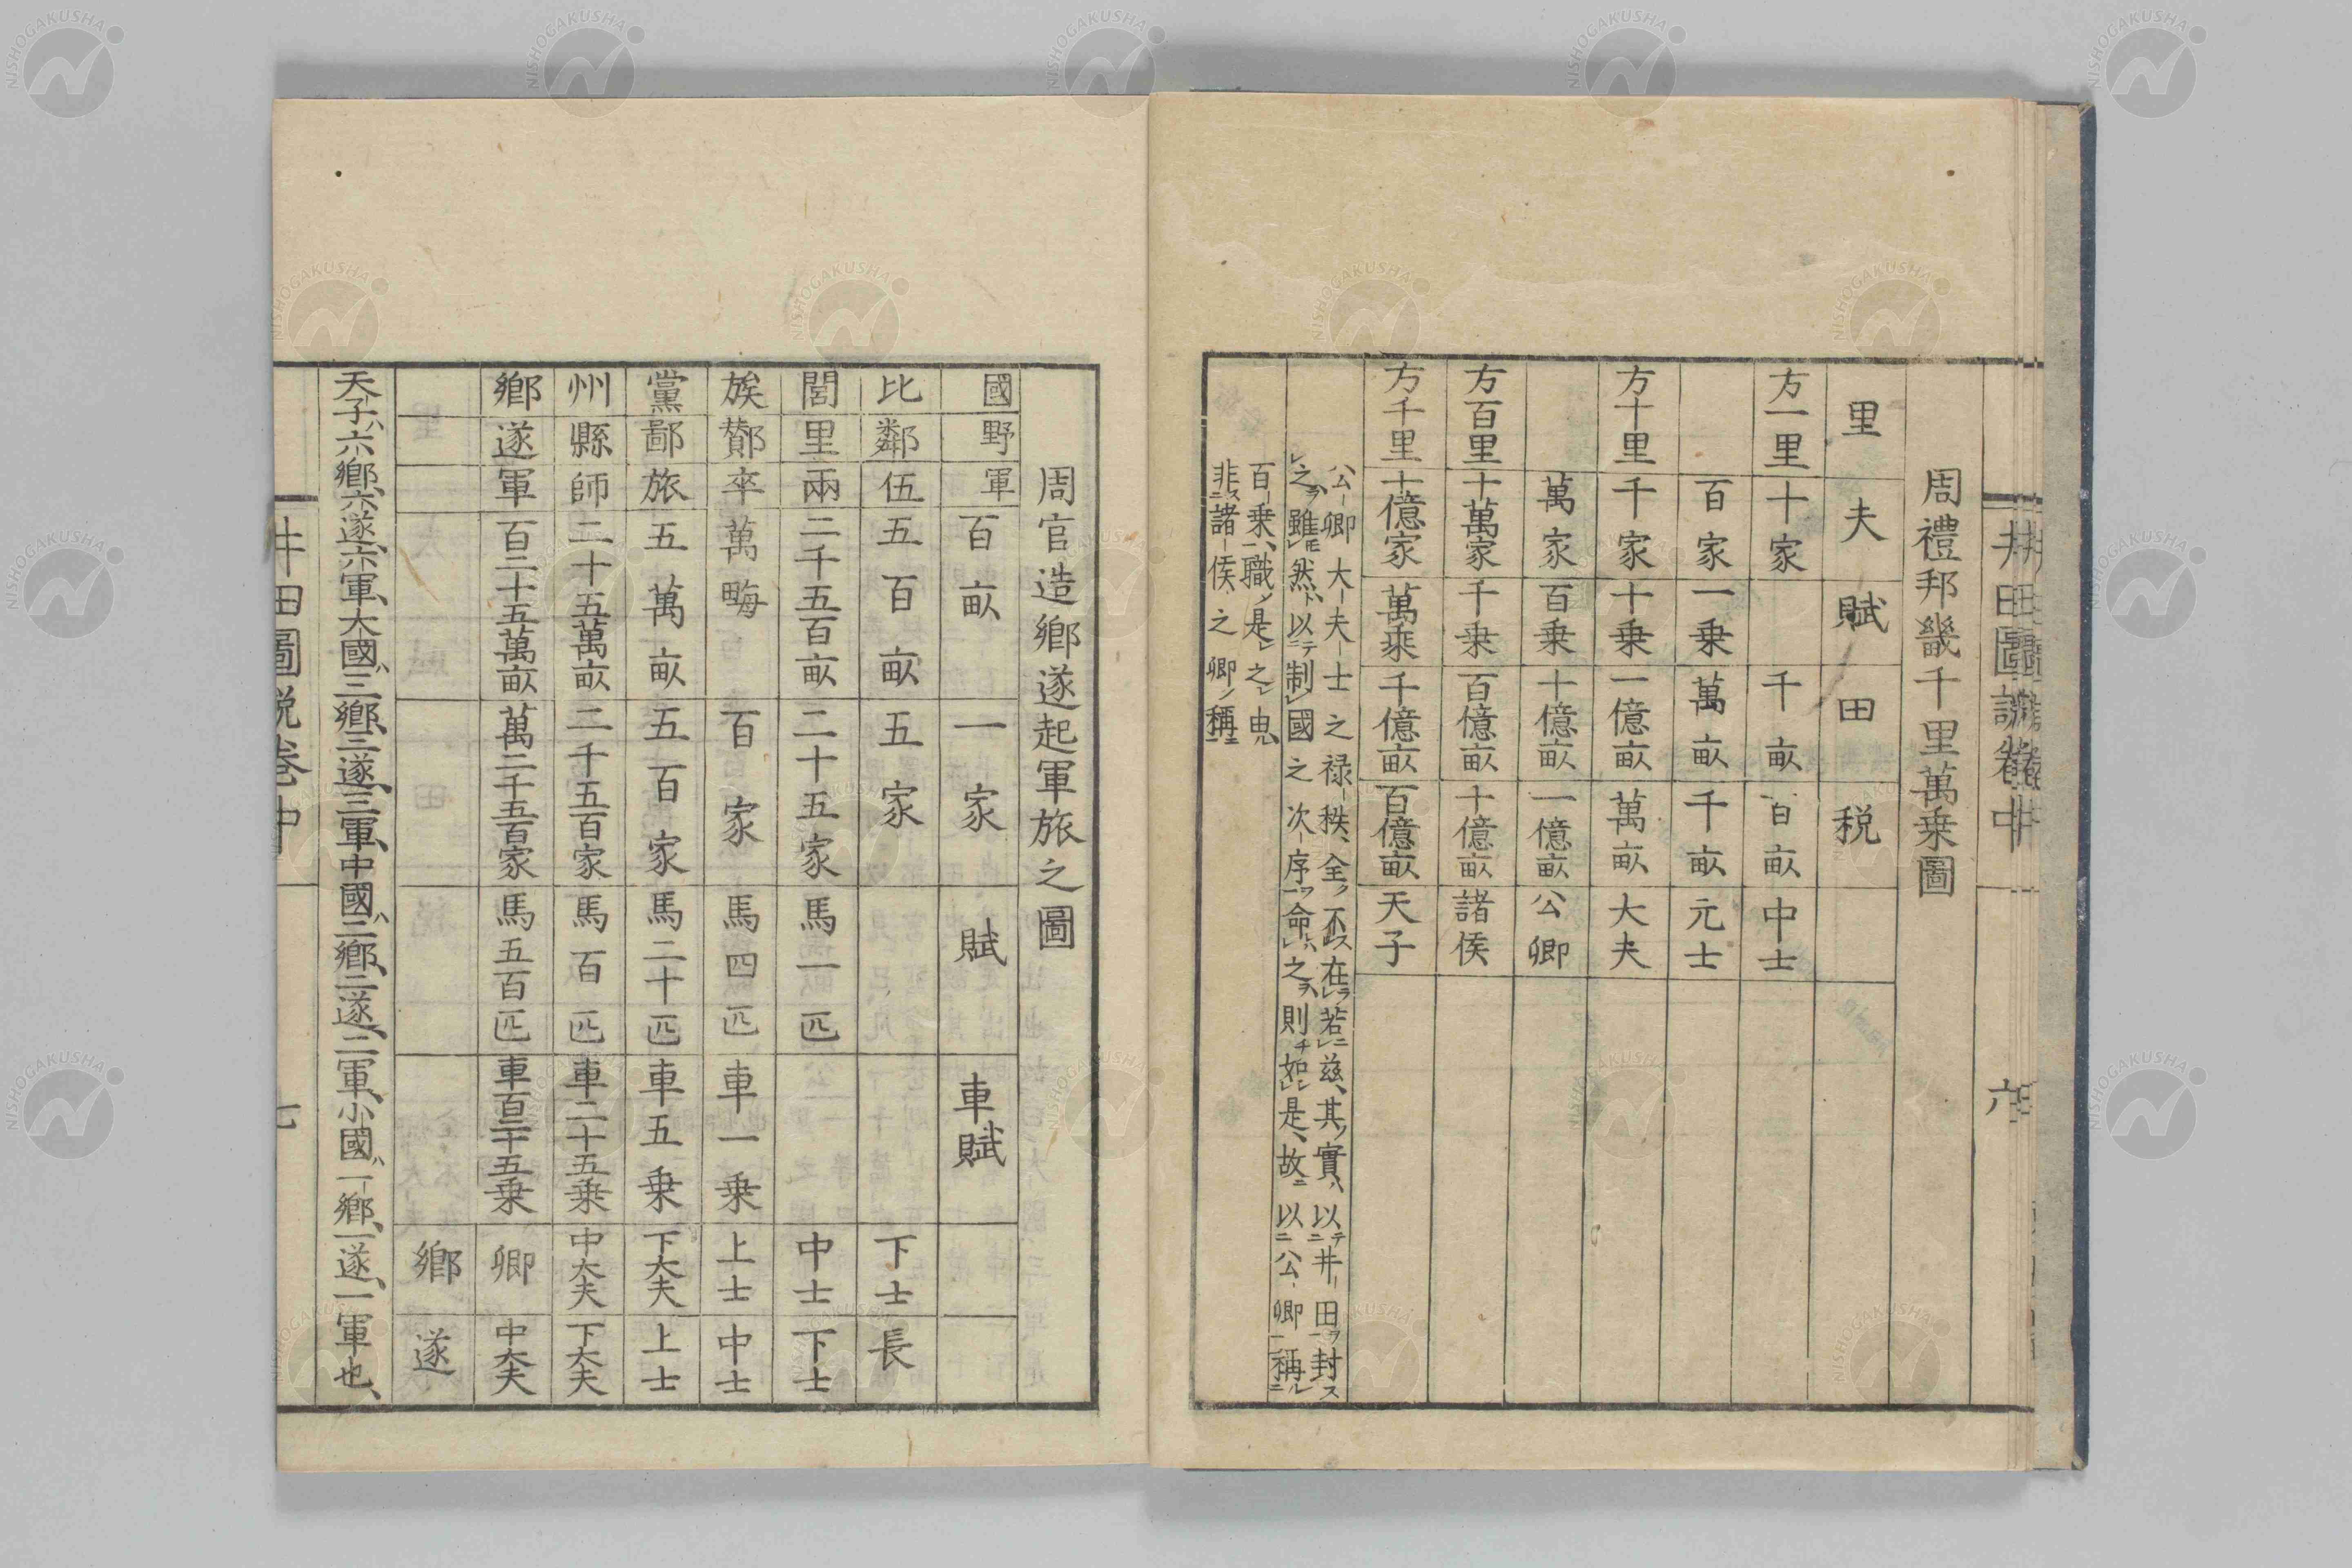 井田圖説卷中
六
周禮邦畿千里萬乗圖
里 夫 賦 田 税
方一里 十家 千畝 百畝 中士
百家 一乗 萬畝 千畝 元士
方十里 千家 十乗 一億畝 萬畝 大夫
萬家 百乗 十億畝 一億畝 公卿
方百里 十萬家 千乗 百億畝 十億畝 諸侯
方千里 十億家 萬乗 千億畝 百億畝 天子
公卿大夫士之禄秩、全ノ不ス在ラ若ニ兹、其ノ實、以テ井田ヲ封ス
之ヲ、雖モ然、以テ制國之次序ヲ命之ヲ、則チ如是、故ニ以公卿稱
百乗、職ノ是之
非ス諸侯之卿ノ稱
周官造鄉遂起軍旅之圖
國 野 軍 百畝 一家 賦 車賦
比 鄰 伍 五百畝 五家 下士 長
閭 里 兩 二千五百畝 二十五家 馬一匹 中士 下士
族 酇 卒 萬畮 百家 馬四匹 車一乗 上士 中士
黨 鄙 旅 五萬畝 五百家 馬二十匹 車五乗 下大夫 上士
州 縣 師 二十五萬畝 二千五百家 馬百匹 車二十五乗 中大夫 下大夫
鄉 遂 軍 百二十五萬畝 萬二千五百家 馬五百匹 車百二十五乗 卿 中大夫
鄉 遂
天子ハ六鄉、六遂、六軍、大國ハ三鄉、三遂、三軍、中國ハ二鄉、二遂、二軍、小國ハ一鄉、一遂、一軍也、
井田圖説卷中
七
NISHOGAKUSHA